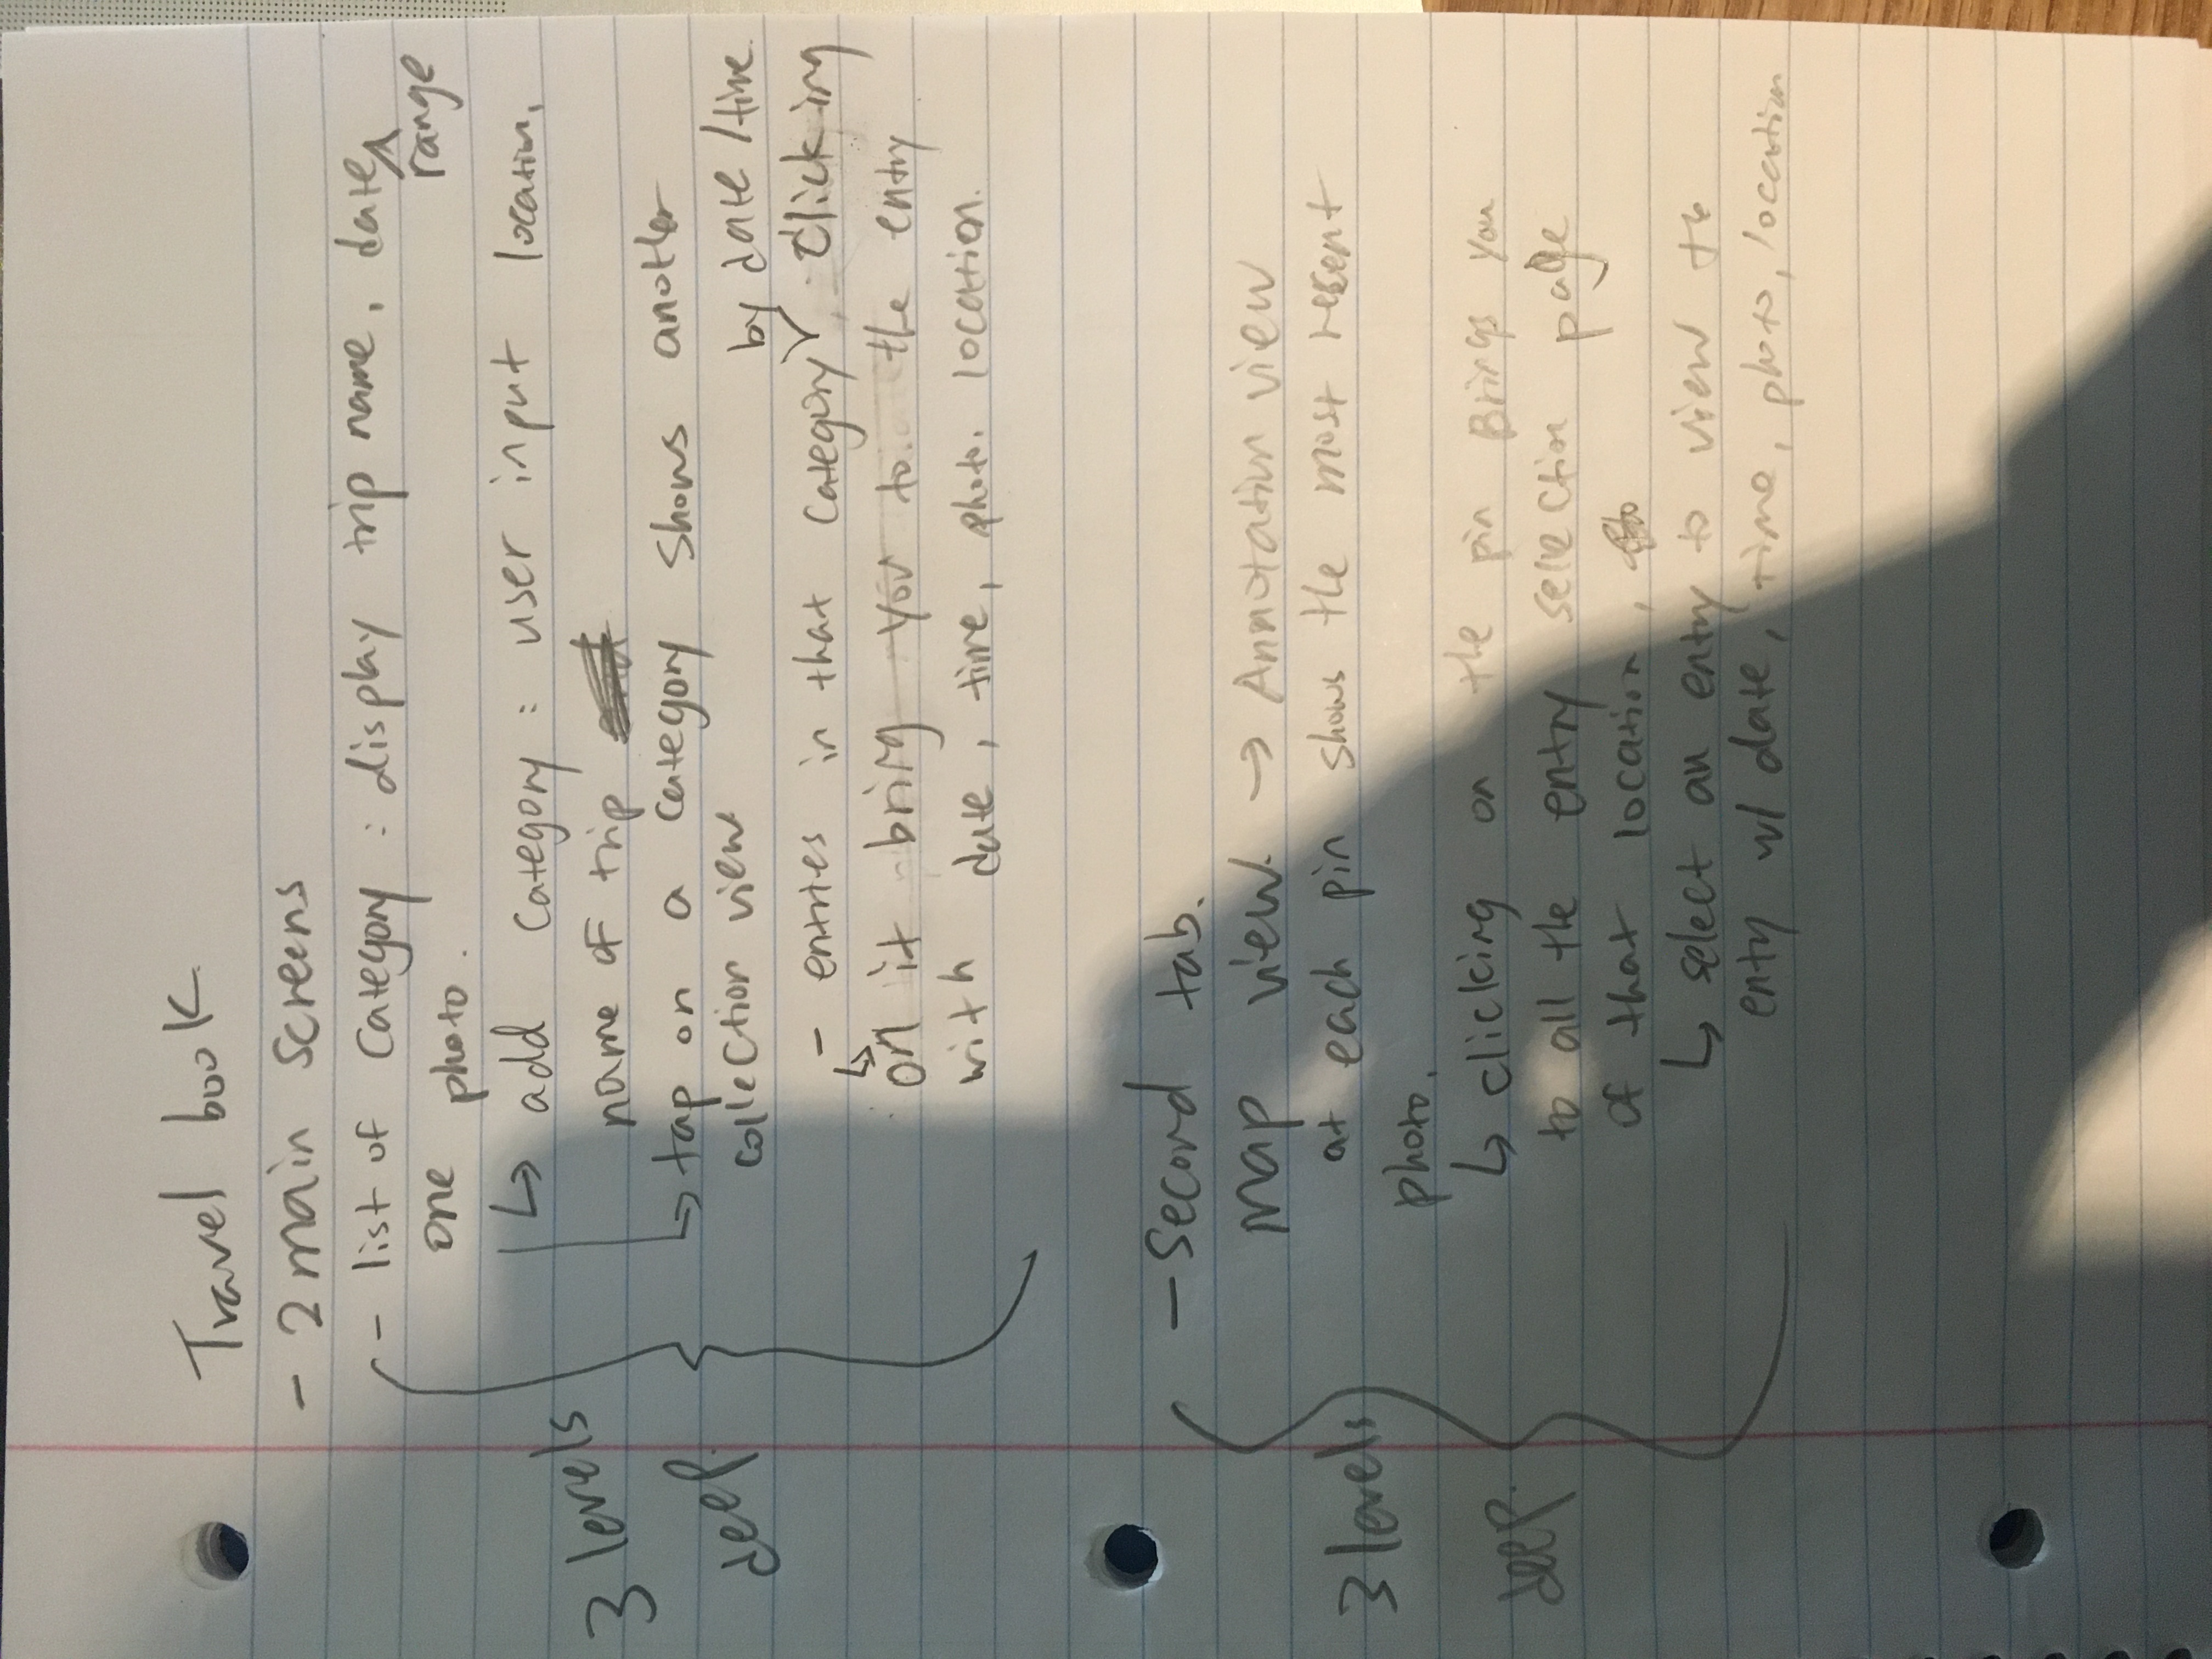 Travel book
- 2 main screens
- list of category : display trip name, date ^ range
one photo.
↳ add category : user input location,
name of trip
↳ tap on a category shows another
collection view
by date / time
- entries in that category ✓, Clicking
↳ on it bring you to the entry
with date, time, photo. location.
3 levels
deep.
- Second tab.
Map view. → Annotation view
at each pin shows the most recent
photo.
↳ clicking on the pin Brings you
to all the entry selection page
of that location,
↳ select an entry to view the
entry w/ date, time, photo, location
3 levels
deep.